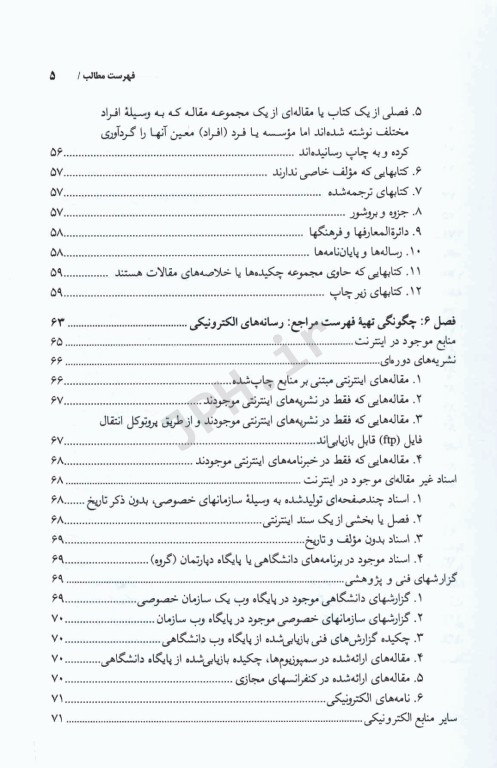 فهرست مطالب / ۵
۵. فصلی از یک کتاب یا مقاله‌ای از یک مجموعه مقاله که به وسیلهٔ افراد
مختلف نوشته شده‌اند اما مؤسسه یا فرد (افراد) معین آنها را گردآوری
کرده و به چاپ رسانیده‌اند ........ ۵۶
۶. کتابهایی که مؤلف خاصی ندارند ........ ۵۷
۷. کتابهای ترجمه‌شده ........ ۵۷
۸. جزوه و بروشور ........ ۵۷
۹. دائرةالمعارفها و فرهنگها ........ ۵۸
۱۰. رساله‌ها و پایان‌نامه‌ها ........ ۵۸
۱۱. کتابهایی که حاوی مجموعه چکیده‌ها یا خلاصه‌های مقالات هستند ........ ۵۹
۱۲. کتابهای زیر چاپ ........ ۵۹
فصل ۶: چگونگی تهیهٔ فهرست مراجع: رسانه‌های الکترونیکی ........ ۶۳
منابع موجود در اینترنت ........ ۶۵
نشریه‌های دوره‌ای ........ ۶۶
۱. مقاله‌های اینترنتی مبتنی بر منابع چاپ‌شده ........ ۶۶
۲. مقاله‌هایی که فقط در نشریه‌های اینترنتی موجودند ........ ۶۷
۳. مقاله‌هایی که فقط در نشریه‌های اینترنتی موجودند و از طریق پروتوکل انتقال
فایل (ftp) قابل بازیابی‌اند ........ ۶۷
۴. مقاله‌هایی که فقط در خبرنامه‌های اینترنتی موجودند ........ ۶۸
اسناد غیر مقاله‌ای موجود در اینترنت ........ ۶۸
۱. اسناد چندصفحه‌ای تولیدشده به وسیلهٔ سازمانهای خصوصی، بدون ذکر تاریخ ........ ۶۸
۲. فصل یا بخشی از یک سند اینترنتی ........ ۶۸
۳. اسناد بدون مؤلف و تاریخ ........ ۶۹
۴. اسناد موجود در برنامه‌های دانشگاهی یا پایگاه دپارتمان (گروه) ........ ۶۹
گزارشهای فنی و پژوهشی ........ ۶۹
۱. گزارشهای دانشگاهی موجود در پایگاه وب یک سازمان خصوصی ........ ۶۹
۲. گزارشهای سازمانهای خصوصی موجود در پایگاه وب سازمان ........ ۷۰
۳. چکیده گزارش‌های فنی بازیابی‌شده از پایگاه وب دانشگاهی ........ ۷۰
۴. مقاله‌های ارائه‌شده در سمپوزیوم‌ها، چکیده بازیابی‌شده از پایگاه دانشگاهی ........ ۷۰
۵. مقاله‌های ارائه‌شده در کنفرانسهای مجازی ........ ۷۰
۶. نامه‌های الکترونیکی ........ ۷۱
سایر منابع الکترونیکی ........ ۷۱
JPH.ir